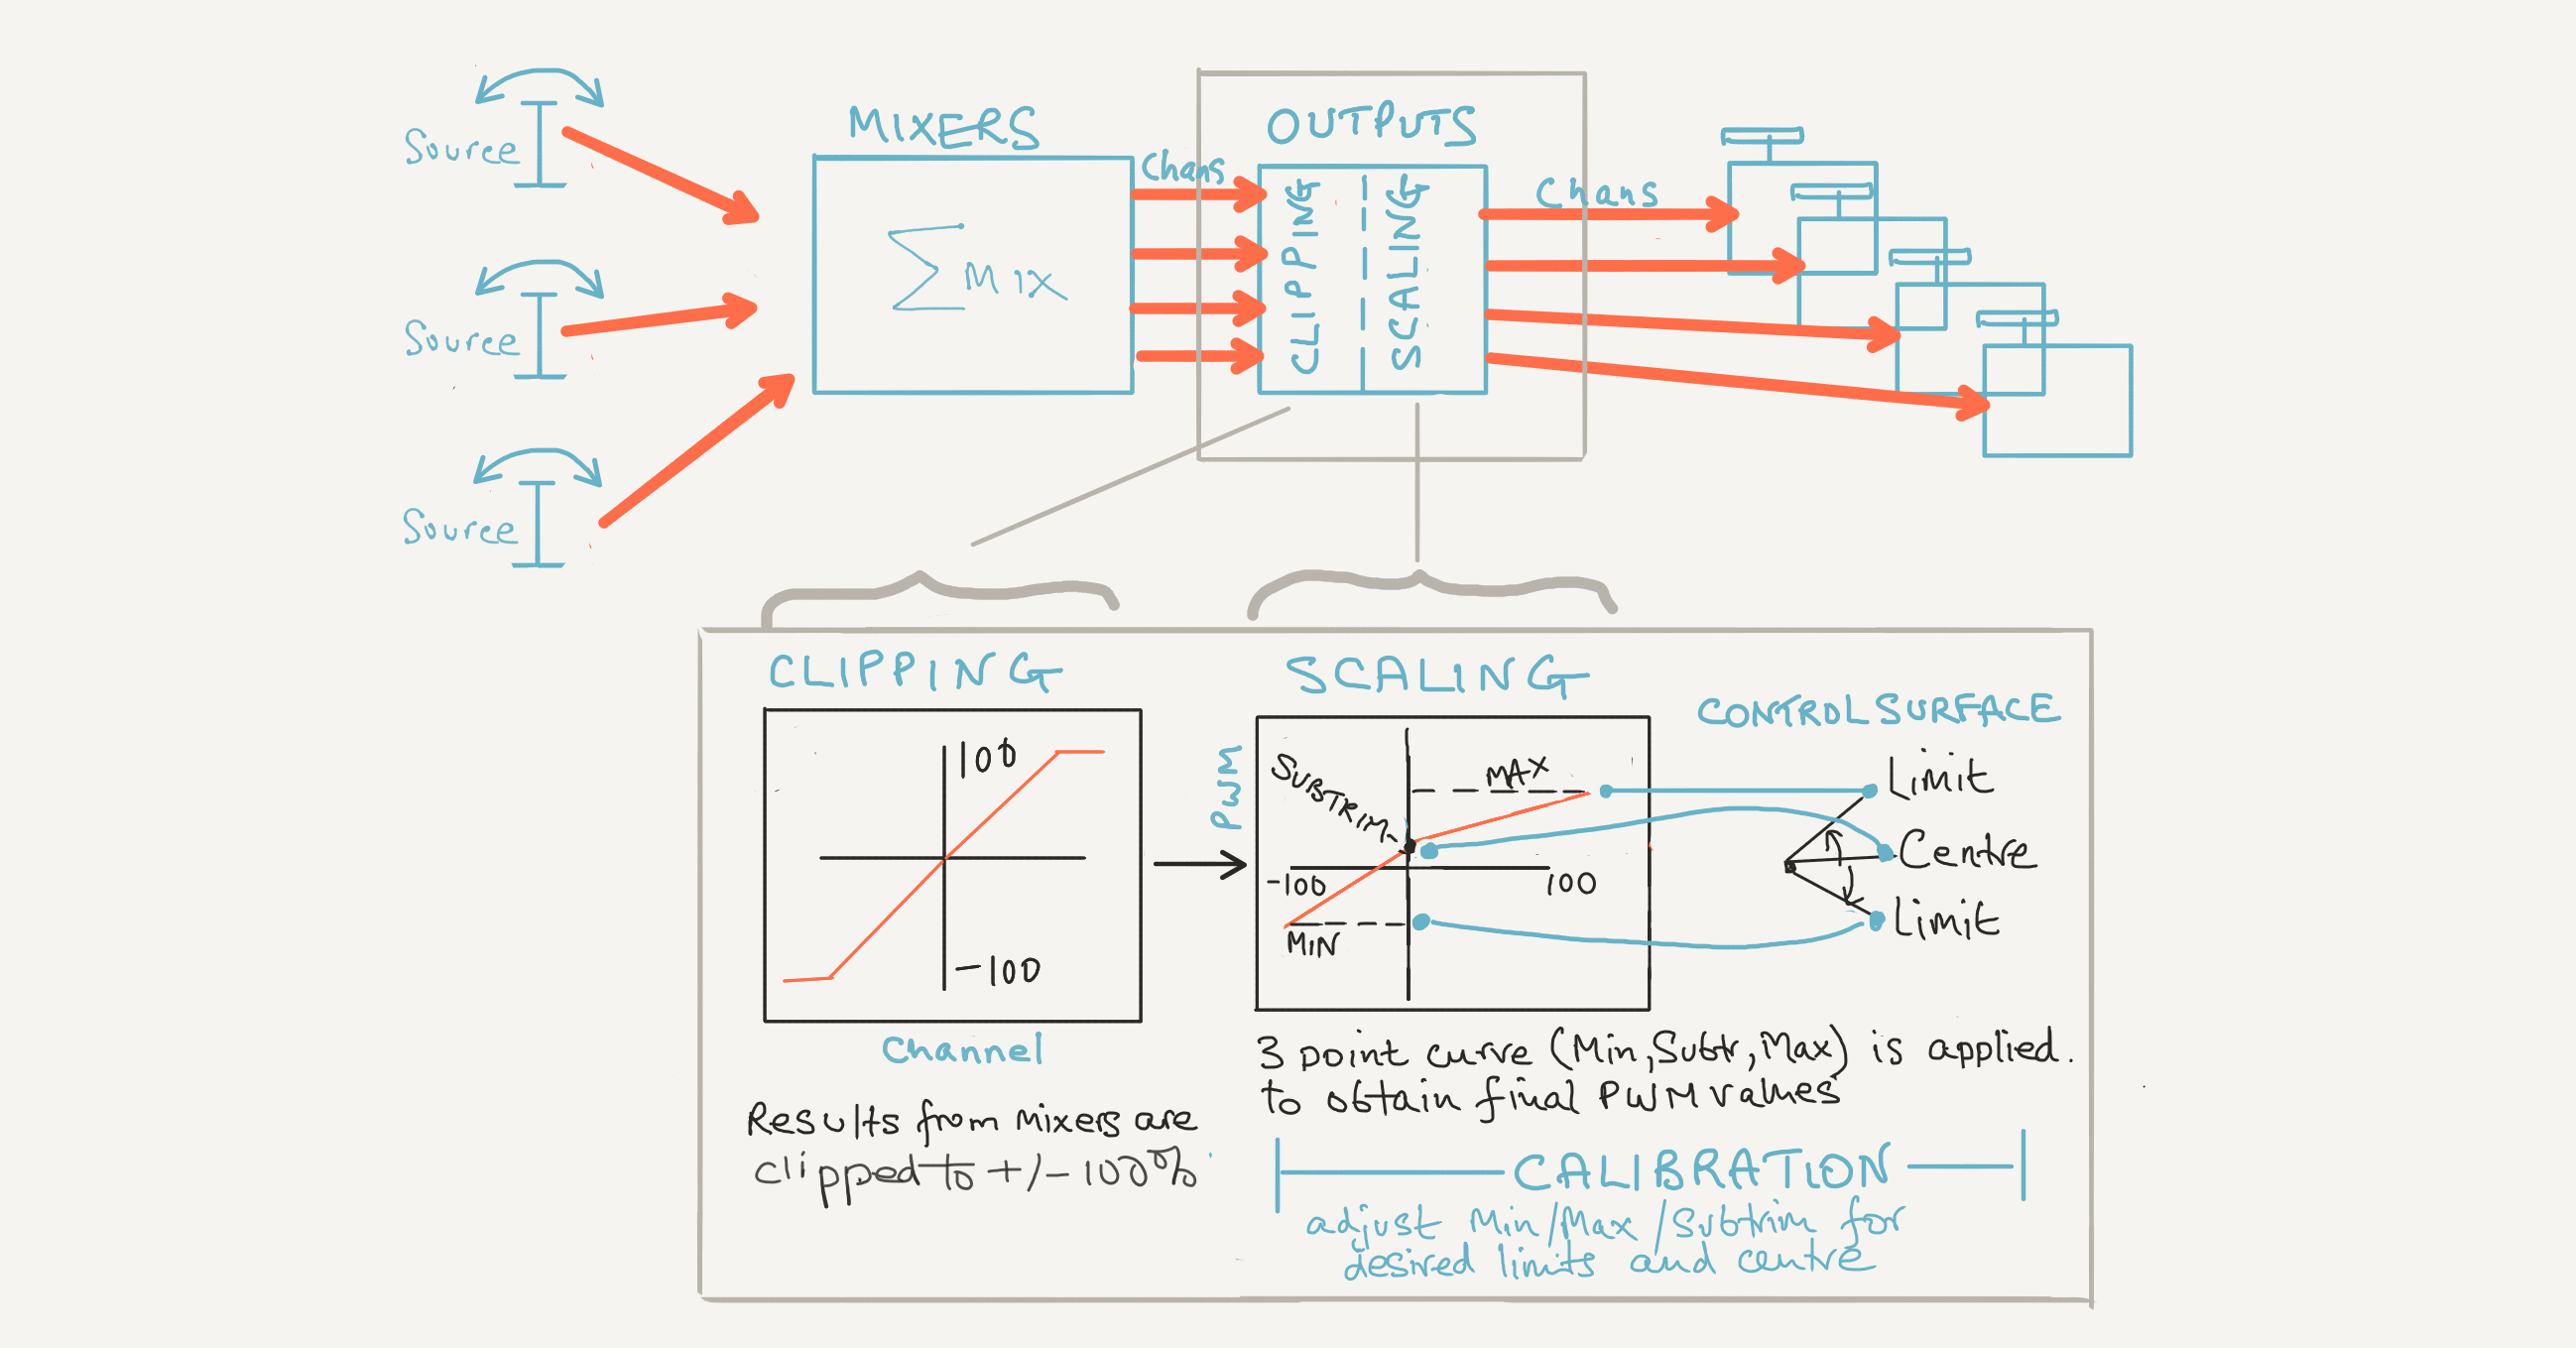 Source
Source
Source
MIXERS
Σ MIX
Chans
OUTPUTS
CLIPPING
SCALING
Chans
CLIPPING
100
-100
Channel
Results from Mixers are
clipped to +/- 100%
SCALING
PWM
SUBTRIM
MAX
-100
100
MIN
CONTROL SURFACE
Limit
Centre
Limit
3 point curve (Min, Subtr, Max) is applied.
to obtain final PWM values
CALIBRATION
adjust Min/Max/Subtrim for
desired limits and centre